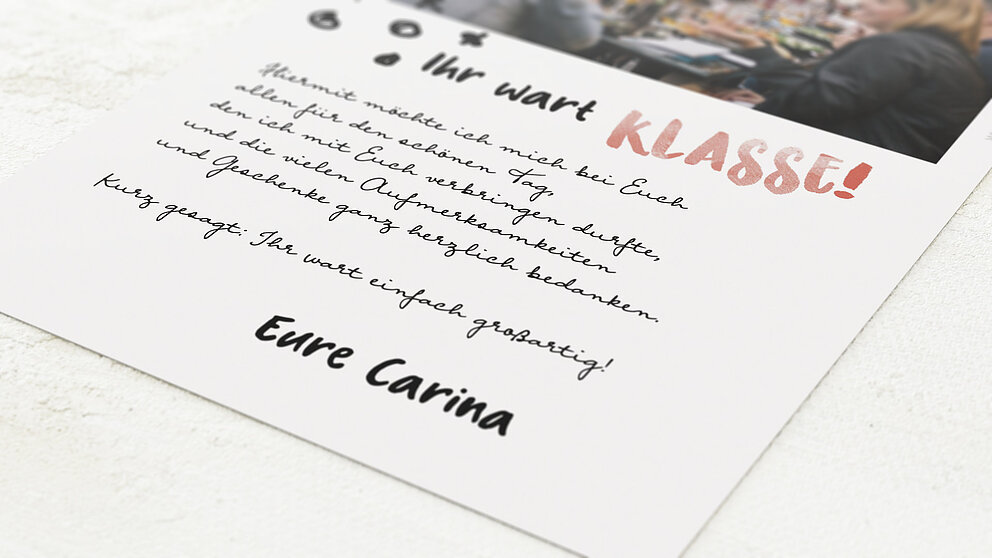 Ihr wart KLASSE!
Hiermit möchte ich mich bei Euch
allen für den schönen Tag,
den ich mit Euch verbringen durfte,
und die vielen Aufmerksamkeiten
und Geschenke ganz herzlich bedanken.
Kurz gesagt: Ihr wart einfach großartig!
Eure Carina